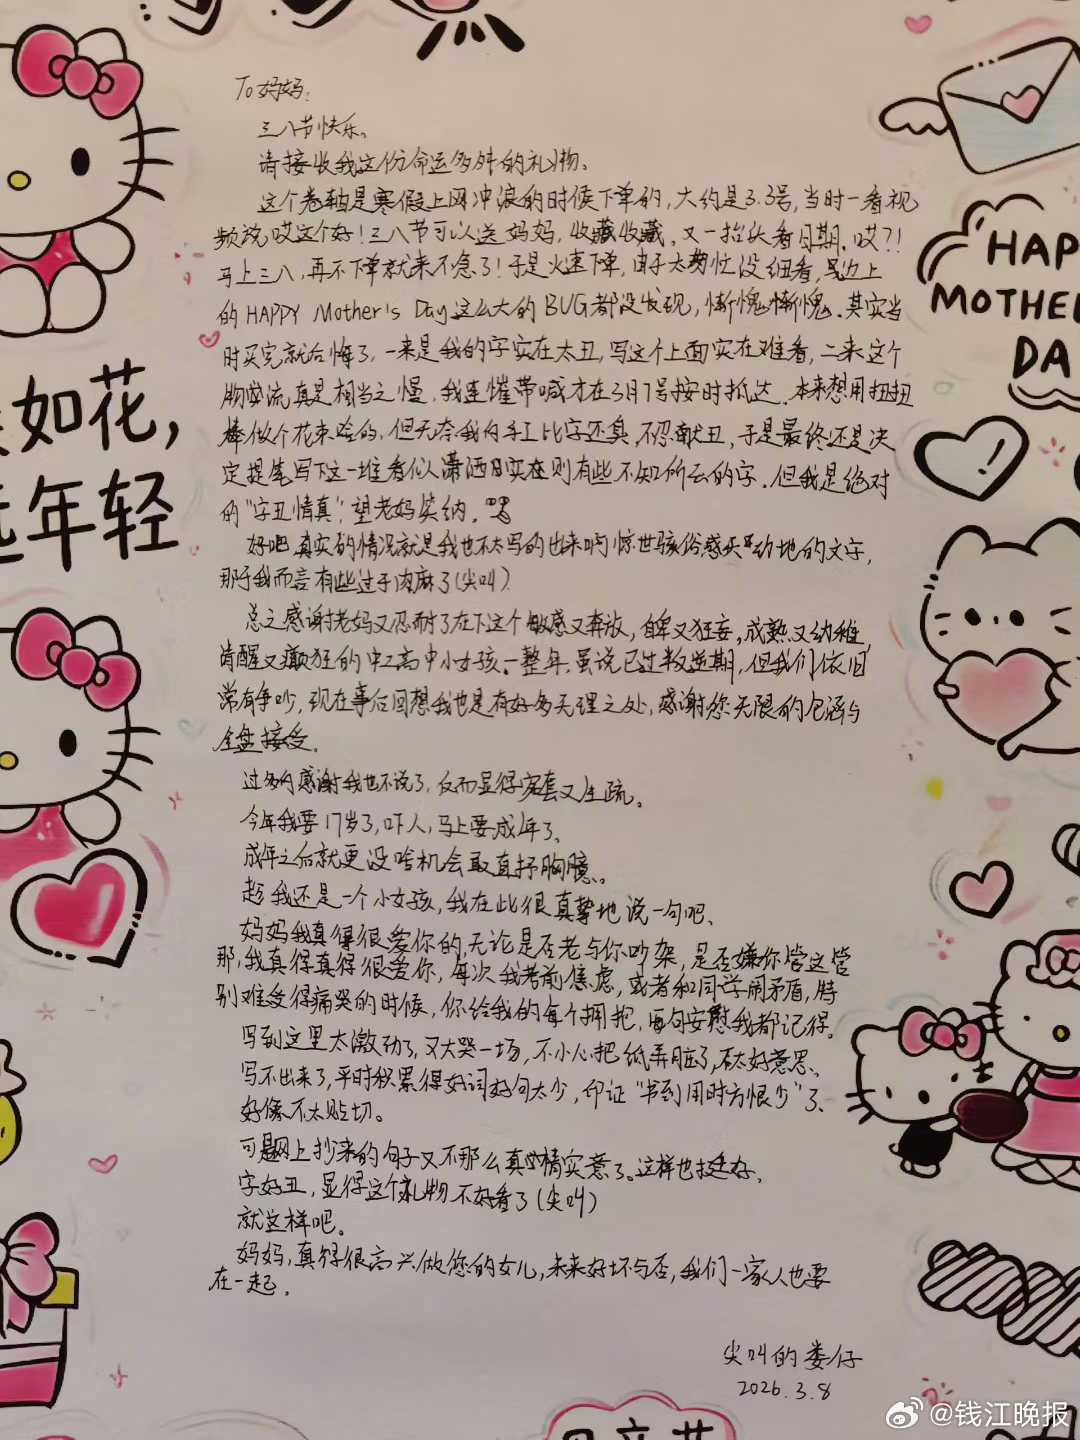 To 妈妈:
三八节快乐。
请接收我这份命运多舛的礼物。
这个卷轴是寒假上网冲浪的时候下单的,大约是3.3号,当时一看视
频说哎这个好!三八节可以送妈妈,收藏收藏。又一抬头看日期,哎?!
马上三八,再不下单就来不急了!于是火速下单,由于太匆忙没细看,旁边上
的HAPPY Mother's Day这么大的BUG都没发现,惭愧惭愧.其实当
时买完就后悔了,一来是我的字实在太丑,写这个上面实在难看,二来这个
物流真是相当之慢,我连催带喊才在3月7号按时抵达.本来想用扭扭
棒做个花束啥的,但无奈我的手工比字还臭,不忍献丑,于是最终还是决
定提笔写下这一堆看似潇洒实则有些不知所云的字.但我是绝对
的"字丑情真",望老妈笑纳.
好吧真实的情况就是我也不太写的出来啊惊世骇俗感天动地的文字,
那于我而言有些过于肉麻了(尖叫)
总之感谢老妈又忍耐了在下这个敏感又奔放,自卑又狂妄,成熟又幼稚,
清醒又癫狂的中二高中小女孩一整年.虽说已过叛逆期,但我们依旧
常有争吵,现在事后回想我也是有好多无理之处,感谢您无限的包涵与
全盘接受.
过多的感谢我也不说了,反而显得客套又生疏。
今年我要17岁了,吓人,马上要成年了、
成年之后就更没啥机会敢直抒胸臆、
趁我还是一个小女孩,我在此很真挚地说一句吧、
妈妈我真得很爱你的,无论是否老与你吵架,是否嫌你管这管
那,我真得真得很爱你,每次我考前焦虑,或者和同学闹矛盾,特
别难受得痛哭的时候,你给我的每个拥抱,每句安慰我都记得。
写到这里太激动了,又大哭一场,不小心把纸弄脏了,不太好意思、
写不出来了,平时积累得好词好句太少,印证"书到用时方恨少"了、
好像不太贴切.
可是网上抄来的句子又不那么真情实意了。这样也挺好、
字好丑,显得这个礼物不好看了(尖叫)
就这样吧。
妈妈,真得很高兴做您的女儿,未来好坏与否,我们一家人也要
在一起.
尖叫的娄仔
2026.3.8
如花,
年轻
HAP
MOTHE
DA
@钱江晚报